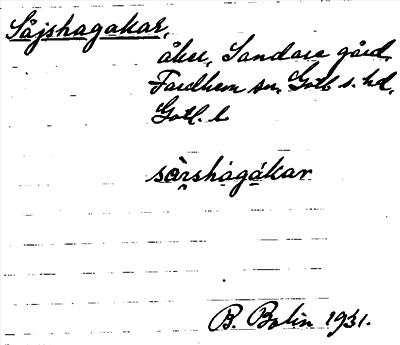 Såjshagakar,
åker, Sandare gård,
Fardhem sn, Gotl s. hd,
Gotl. l
B. Bolin 1931.